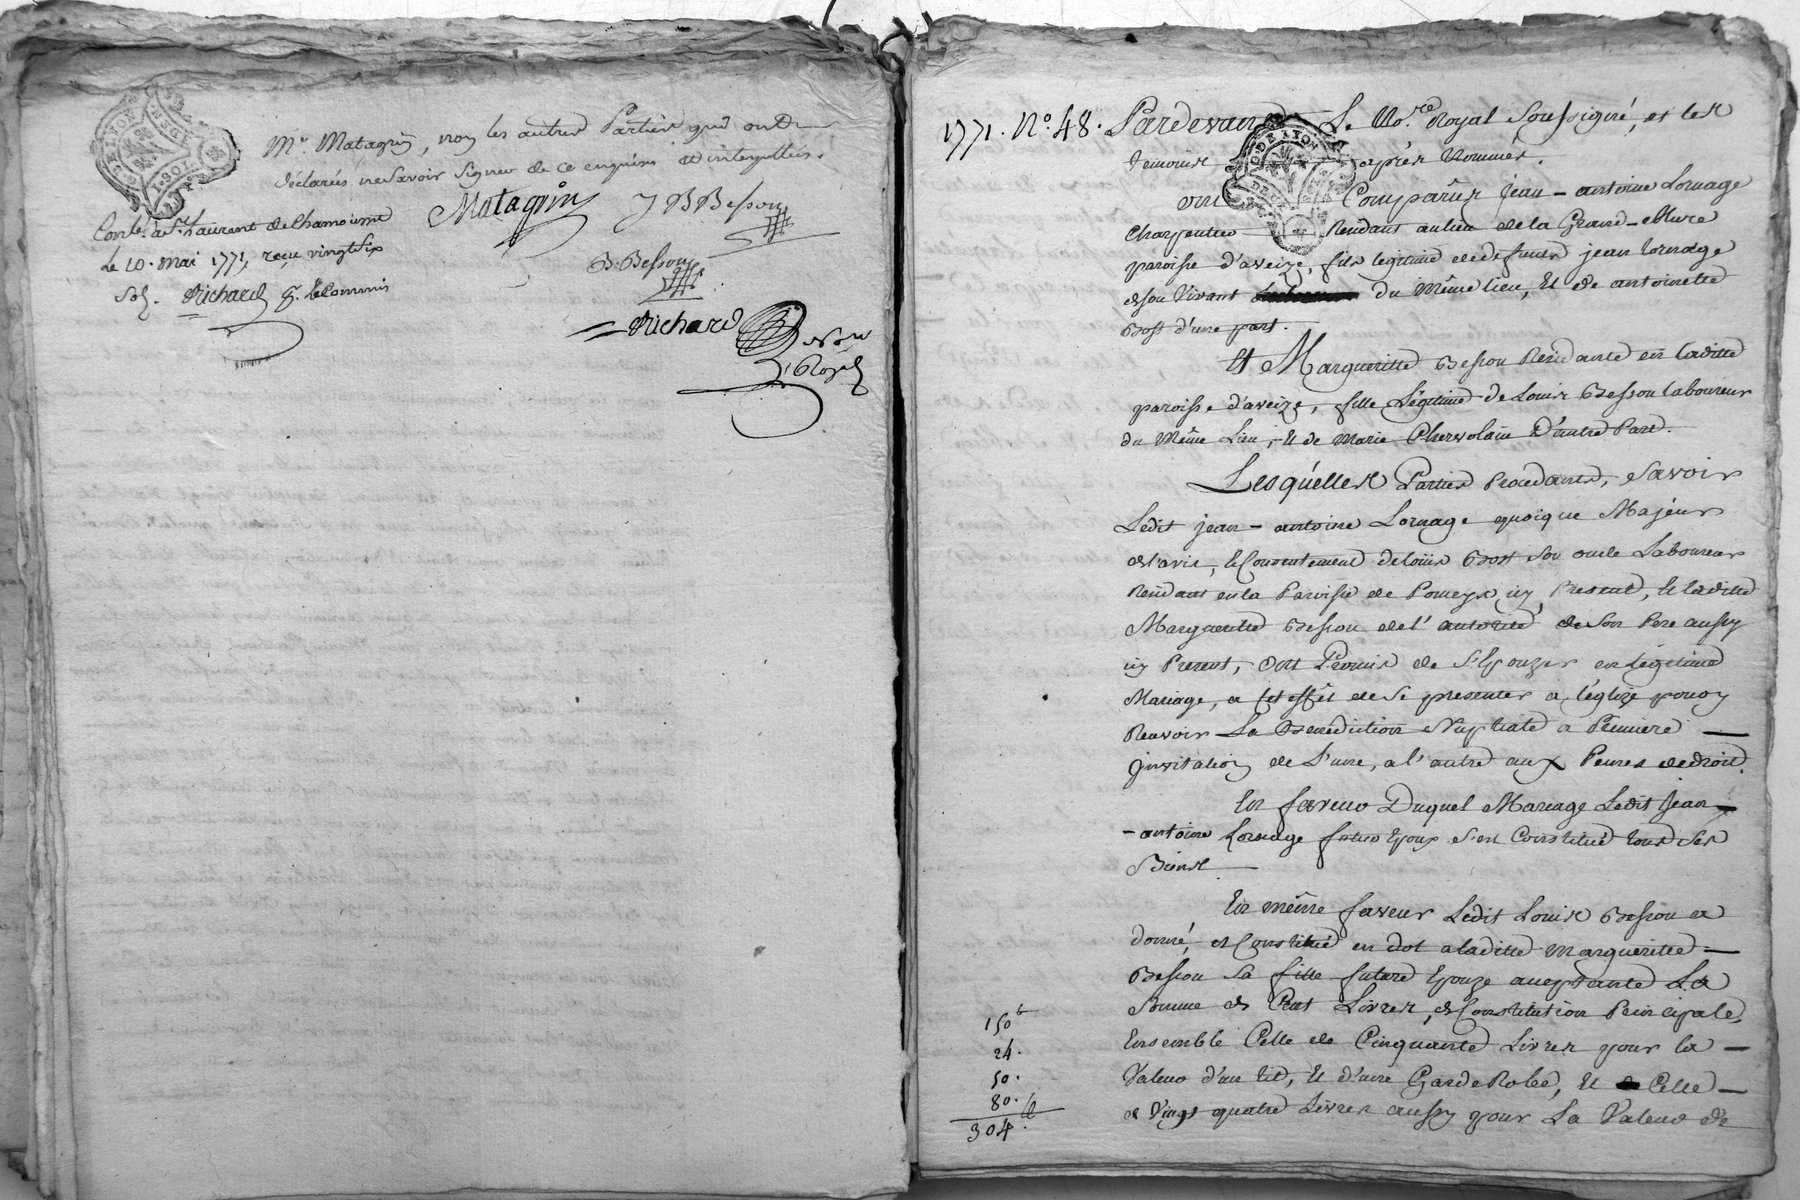 Mr. Matagrin, non les autres Parties qui ont
déclarés ne savoir signer de ce enquis et interpellés.
Matagrin J B Besson
B. Besson
Richard
Conlé. à St. Laurent de Chamousset
Le 10. mai 1771, reçu vingt six
sols. Richard
1771. No. 48. Pardevant Le No.re Royal Soussigné, et les
temoins après Nommés.
ont Comparûs jean-antoine Lornage
Charpentier Residant au lieu de la Grand-
paroisse d'aveize, fils legitime de deffunt jean Lornage
de son Vivant du même lieu, Et de antoinette
Bost d'une part.
Et Margueritte Besson Residante en laditte
paroisse d'aveize, fille Légitime de Louis Besson laboureur
du Même Lieu, Et de Marie D'autre Part.
Lesquelles Parties Procedantes, Savoir
Ledit jean-antoine Lornage quoique Majeur
de l'avis, et Consentement de Loüis Bost son oncle Laboureur
Residant en la Paroisse de Pomeys, icy Present, Et laditte
Margueritte Besson de l'autorité de son Pere aussy
icy Present, ont Promis de S'Epouzer en Légitime
Mariage, a Cet effêt de Se presenter a l'églize pour y
Recevoir La Benediction Nuptiale a Premiere
jnvitation de L'une, a l'autre aux Peines de droit.
En faveur Duquel Mariage Ledit Jean
-antoine Lornage futur Epoux s'est Constitué tous Ses
Biens
En même faveur Ledit Louis Besson a
donné, et Constitué en dot a laditte Margueritte
Besson sa fille future Epouze acceptante La
Somme de Cent Livres, de Constitution Principale,
Ensemble Celle de Cinquante Livres pour la
Valeur d'un lit, Et d'une GardeRobe, Et Celle
de Vingt quatre Livres aussy pour La Valeur de
150lt
24.
50.
80.
304.